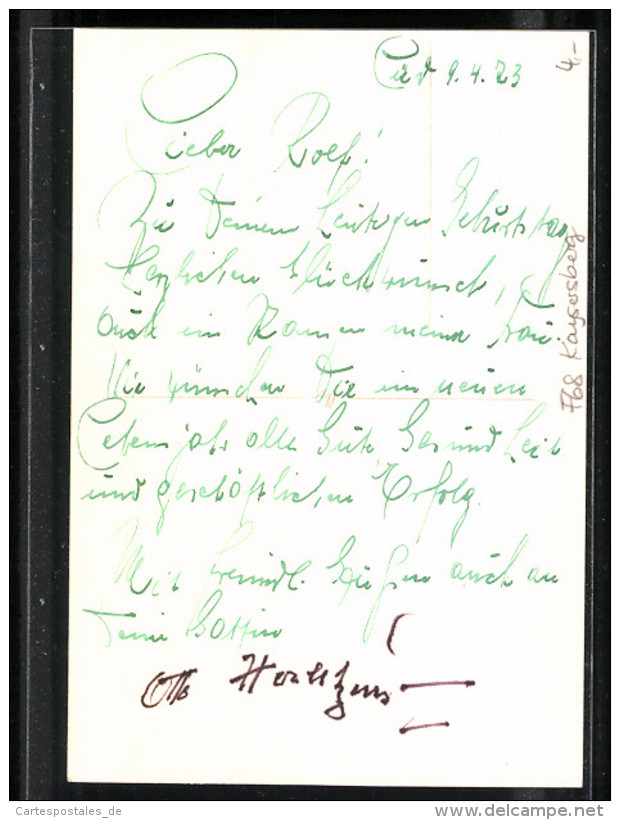 9.4.73
Lieber Rolf!
Zu Deinem heutigen Geburtstag
herzlichen Glückwunsch,
auch im Namen meiner Frau.
Wir wünschen Dir im neuen
Lebensjahr alles Gute, Gesundheit
und geschäftlichen Erfolg.
Mit freundl. Grüßen auch an
Deine Gattin
Otto
4,-
F68 Kaysersberg
Cartespostales_de
delcampe.net